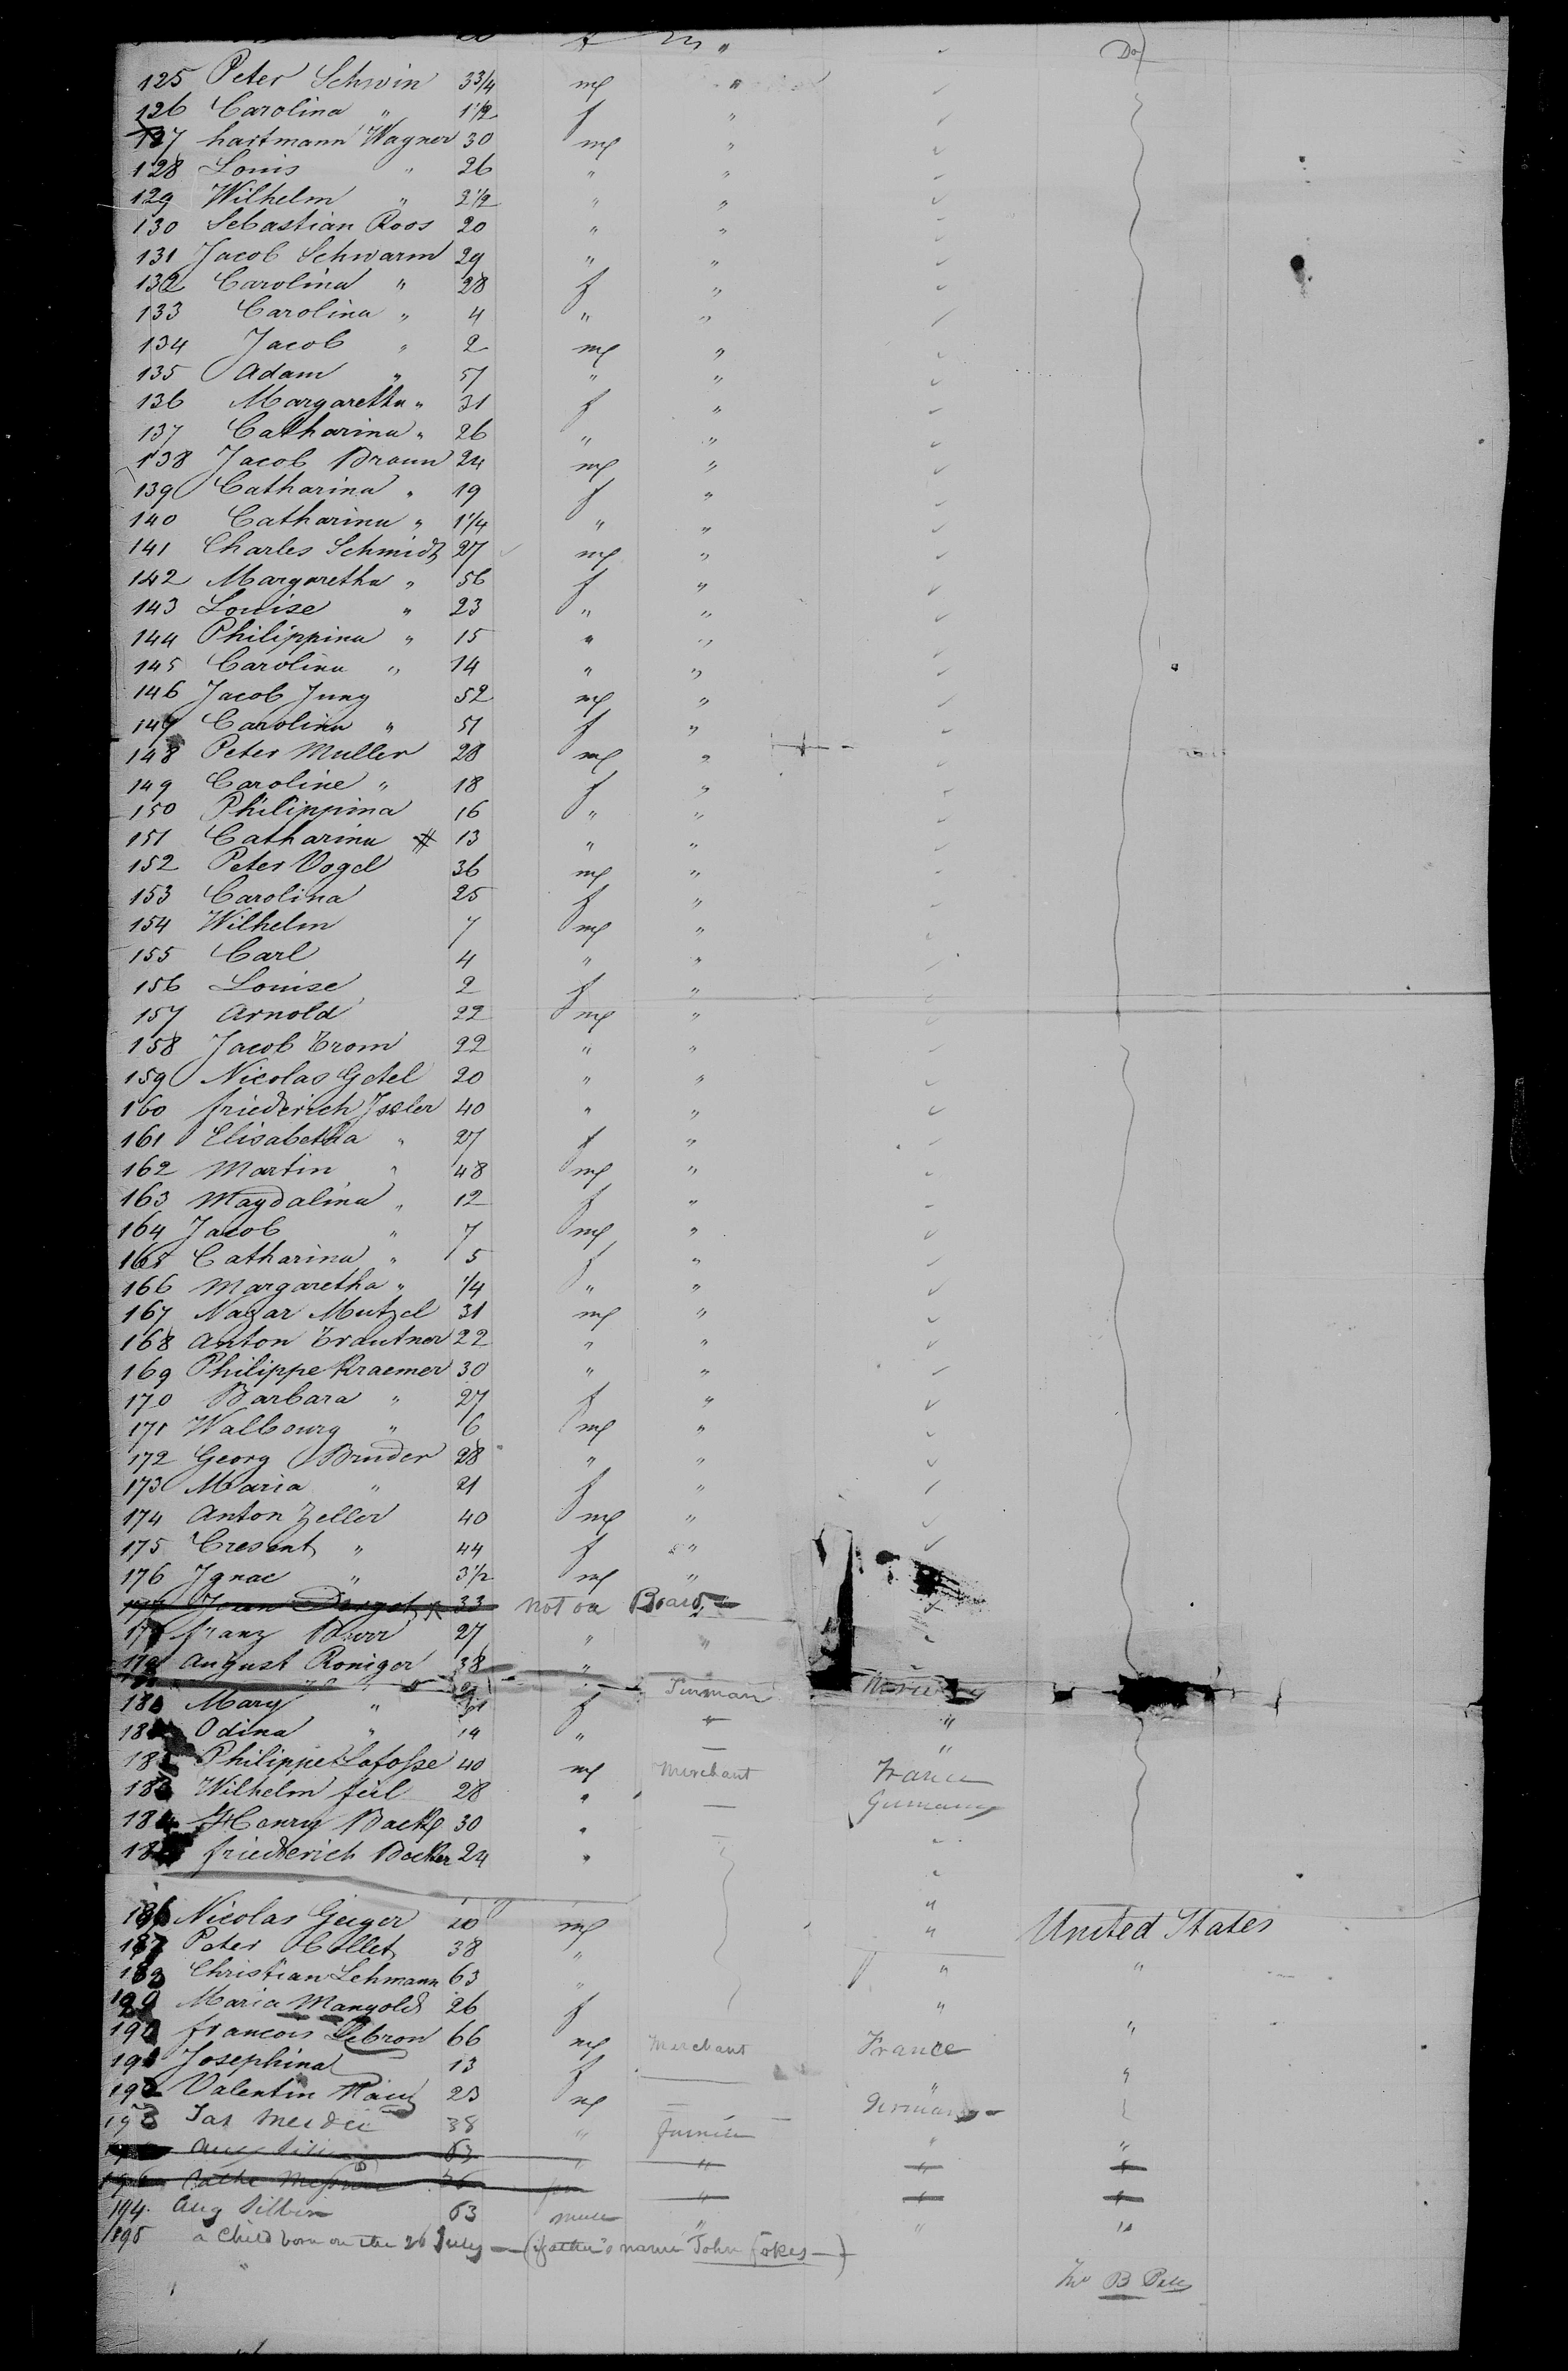 " " Do
125 Peter Schwin 3 3/4 m "
126 Carolina " 1 1/2 f "
127 hartmann Wagner 30 m "
128 Louis " 26 " "
129 Wilhelm " 2 1/2 " "
130 Sebastian Roos 20 " "
131 Jacob Schwarm 29 " "
132 Carolina " 28 f "
133 Carolina " 4 " "
134 Jacob " 2 m "
135 Adam " 57 " "
136 Margaretha " 31 f "
137 Catharina " 26 " "
138 Jacob Braun 24 m "
139 Catharina " 19 f "
140 Catharina " 1 1/4 " "
141 Charles Schmidt 27 m "
142 Margaretha " 56 f "
143 Louise " 23 " "
144 Philippina " 15 " "
145 Carolina " 14 " "
146 Jacob Jung 52 m "
147 Carolina " 51 f "
148 Peter Muller 28 m "
149 Caroline " 18 f "
150 Philippina 16 " "
151 Catharina 13 " "
152 Peter Vogel 36 m "
153 Carolina 25 f "
154 Wilhelm 7 m "
155 Carl 4 " "
156 Louise 2 f "
157 Arnold 22 m "
158 Jacob Trom 22 " "
159 Nicolas Getel 20 " "
160 friederich Issler 40 " "
161 Elisabetha " 27 f "
162 Martin " 48 m "
163 Magdalina " 12 f "
164 Jacob " 7 m "
165 Catharina " 5 f "
166 Margaretha " 1/4 " "
167 Nazar Mutzel 31 m "
168 Anton Trautner 22 " "
169 Philippe Kraemer 30 " "
170 Barbara " 27 f "
171 Walbourg " 6 m "
172 Georg Bruder 28 " "
173 Maria " 21 f "
174 Anton Zeller 40 m "
175 Cresent " 44 f "
176 Ignac " 3 1/2 m "
177 Jean 33 not on Board
franz Durr 27 " "
179 August Roniger 38 "
Mary " 31 f
Odina " 14 " "
Philippe Lafosse 40 m Merchant France
183 Wilhelm feil 28 " Germany
184 Henry Backe 30 "
friederich Becker 24 "
186 Nicolas Geiger 20 m " United States
187 Peter Collet 38 " "
Christian Lehmann 63 " " "
Maria Mangold 26 f "
190 francois Lebron 66 m Merchant France "
191 Josephina 13 f " "
192 Valentin 23 m Germany
193 38 " Farmer " "
63 " " " "
" " "
194 Aug 63 male " " "
195 a Child born on the 26 July (father's name John fokes)